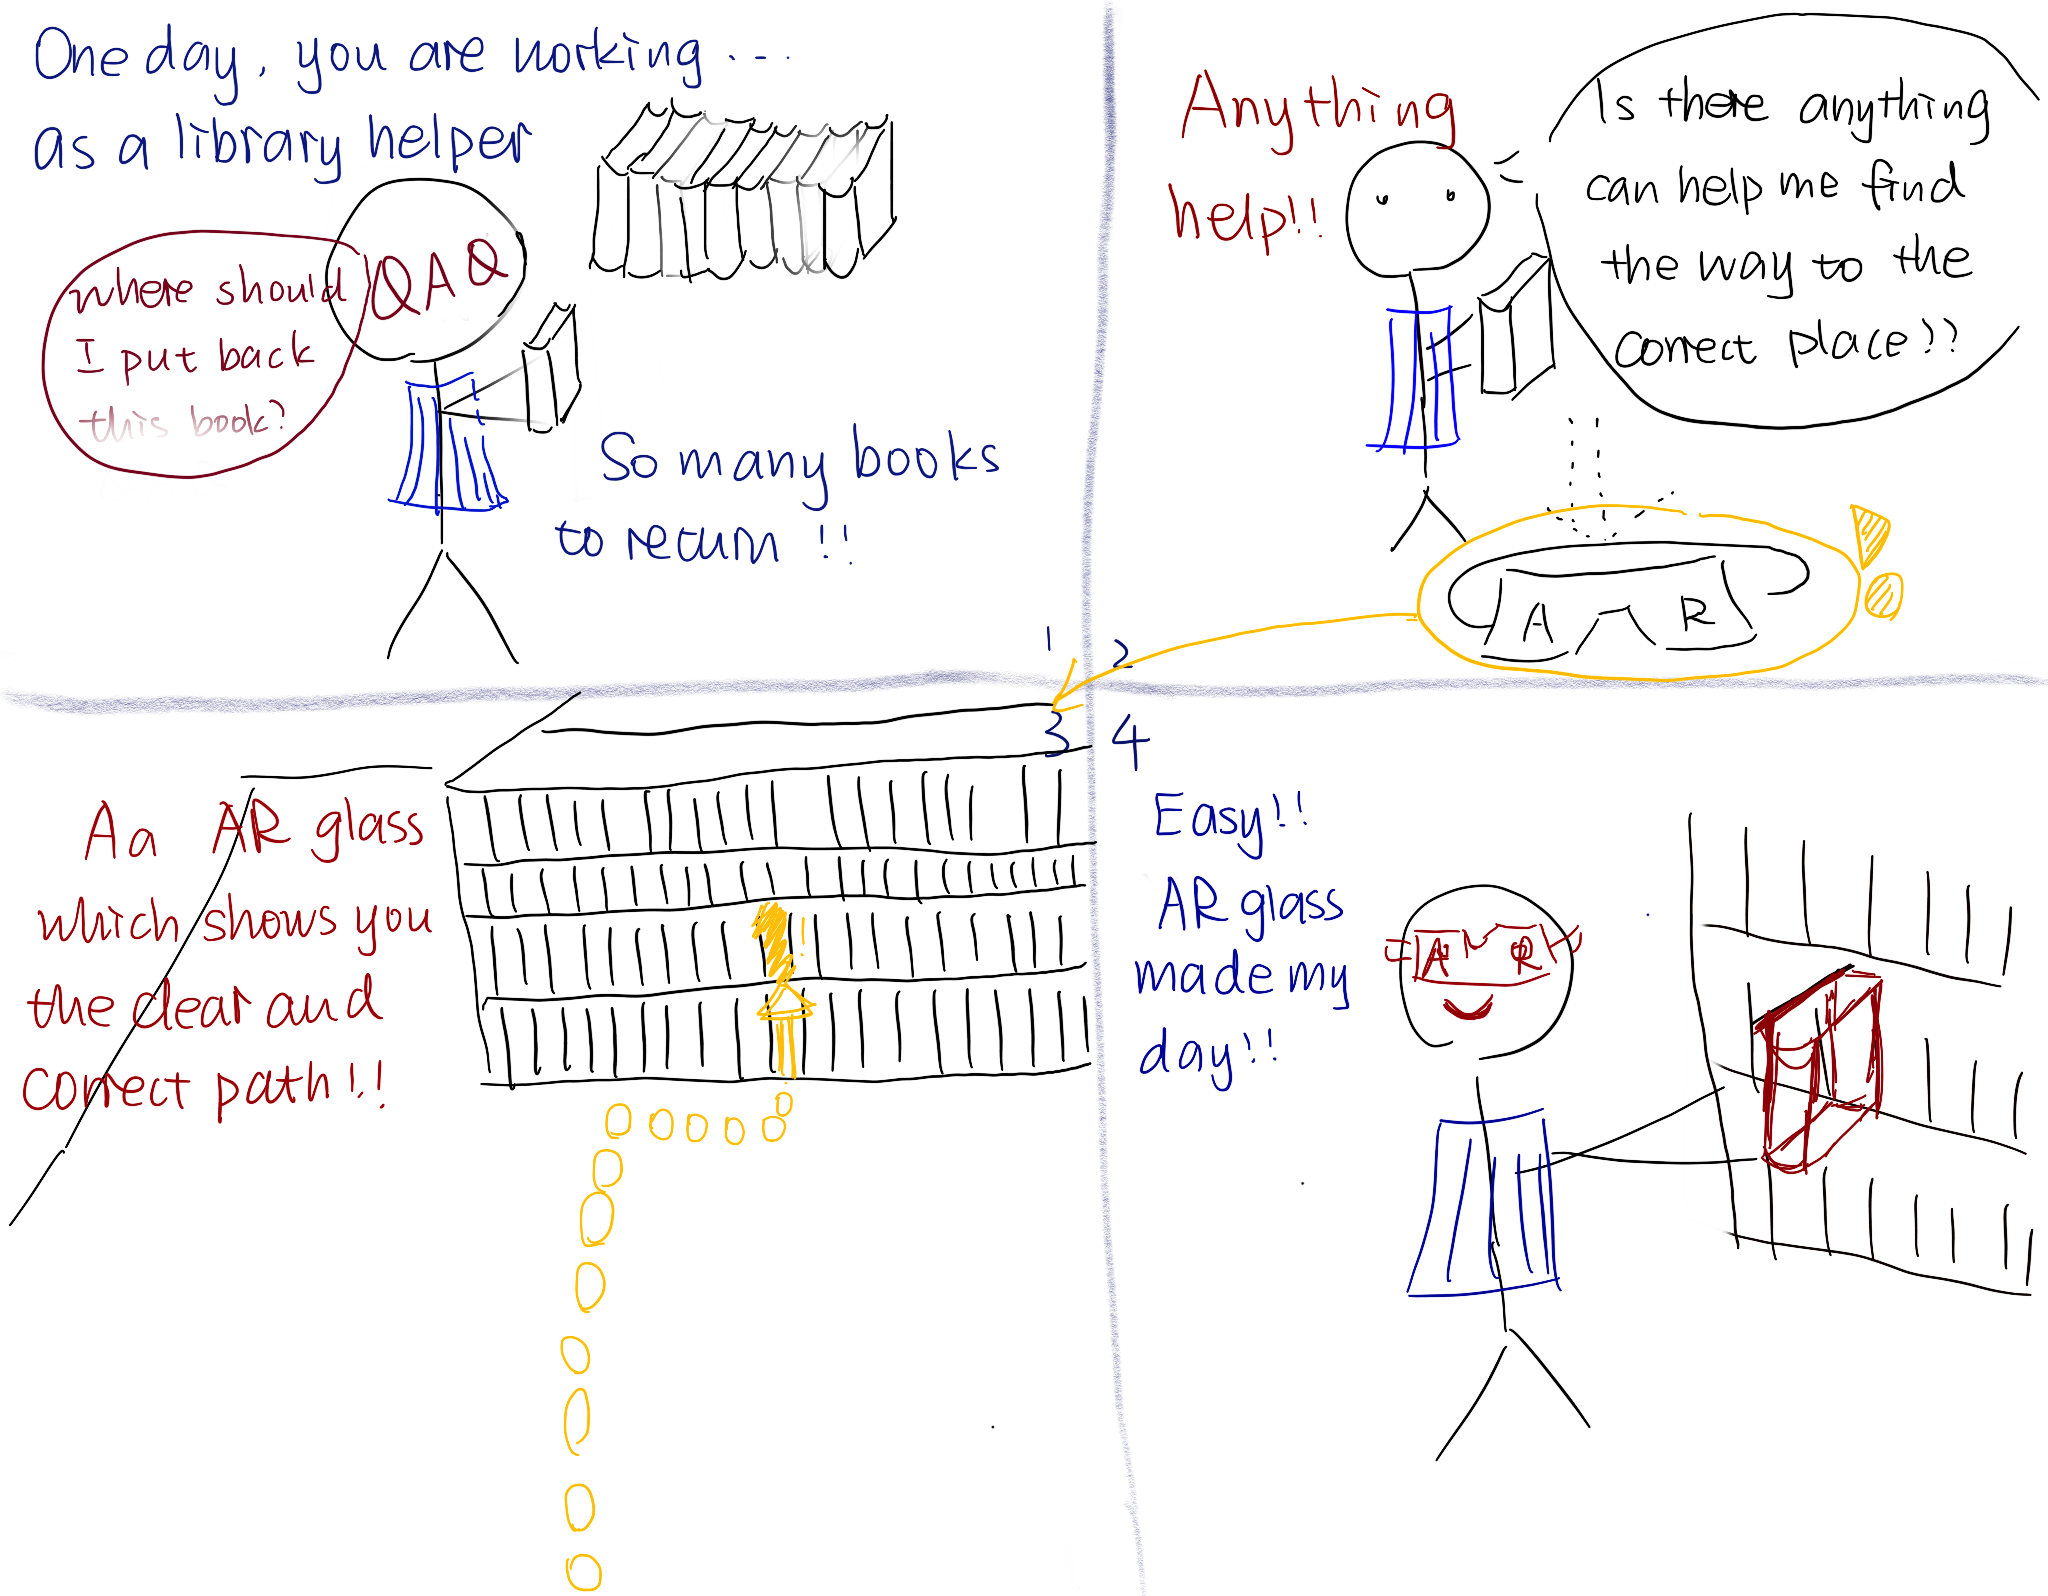 One day, you are working ...
as a library helper
QAQ
where should
I put back
this book?
So many books
to return !!
1
Anything
help!!
Is there anything
can help me find
the way to the
correct place??
A R
2
3
Aa AR glass
which shows you
the clear and
correct path!!
!
4
Easy!!
AR glass
made my
day!!
A R